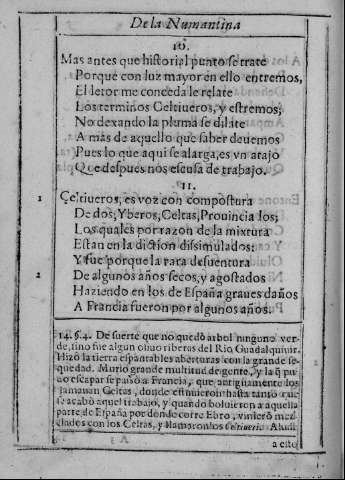 De la Numantina
10.
Mas antes que historial punto se trate
Porque con luz mayor en ello entremos,
El letor me conceda le relate
Los terminos Celtiueros, y estremos;
No dexando la pluma se dilate
A mas de aquello que saber deuemos
Pues lo que aqui se alarga, es vn atajo
Que despues nos escusa de trabajo.
11.
1 Celtiueros, es voz con compostura
De dos; Yberos, Celtas, Prouincia los;
Los quales por razon de la mixtura
Estan en la dicion dissimulados:
Y fue porque la rara desuentura
2 De algunos años secos, y agostados
Haziendo en los de España graues daños
A Francia fueron por algunos años.
14. 6. 4. De suerte que no quedò arbol ninguno ver-
de, sino fue algun oliuo riberas del Rio Guadalquiuir.
Hizo la tierra espantables aberturas con la grande se-
quedad. Murio grande multitud de gente, y la q̃ pu-
do escapar se passò a Francia, que antiguamente los
llamauan Celtas, donde estuuieron hasta tanto que
se acabò aquel trabajo, y quando boluieron a aquella
parte de España por donde corre Ebro, vinierõ mez
clados con los Celtas, y llamaronlos Celtiueros
a esto